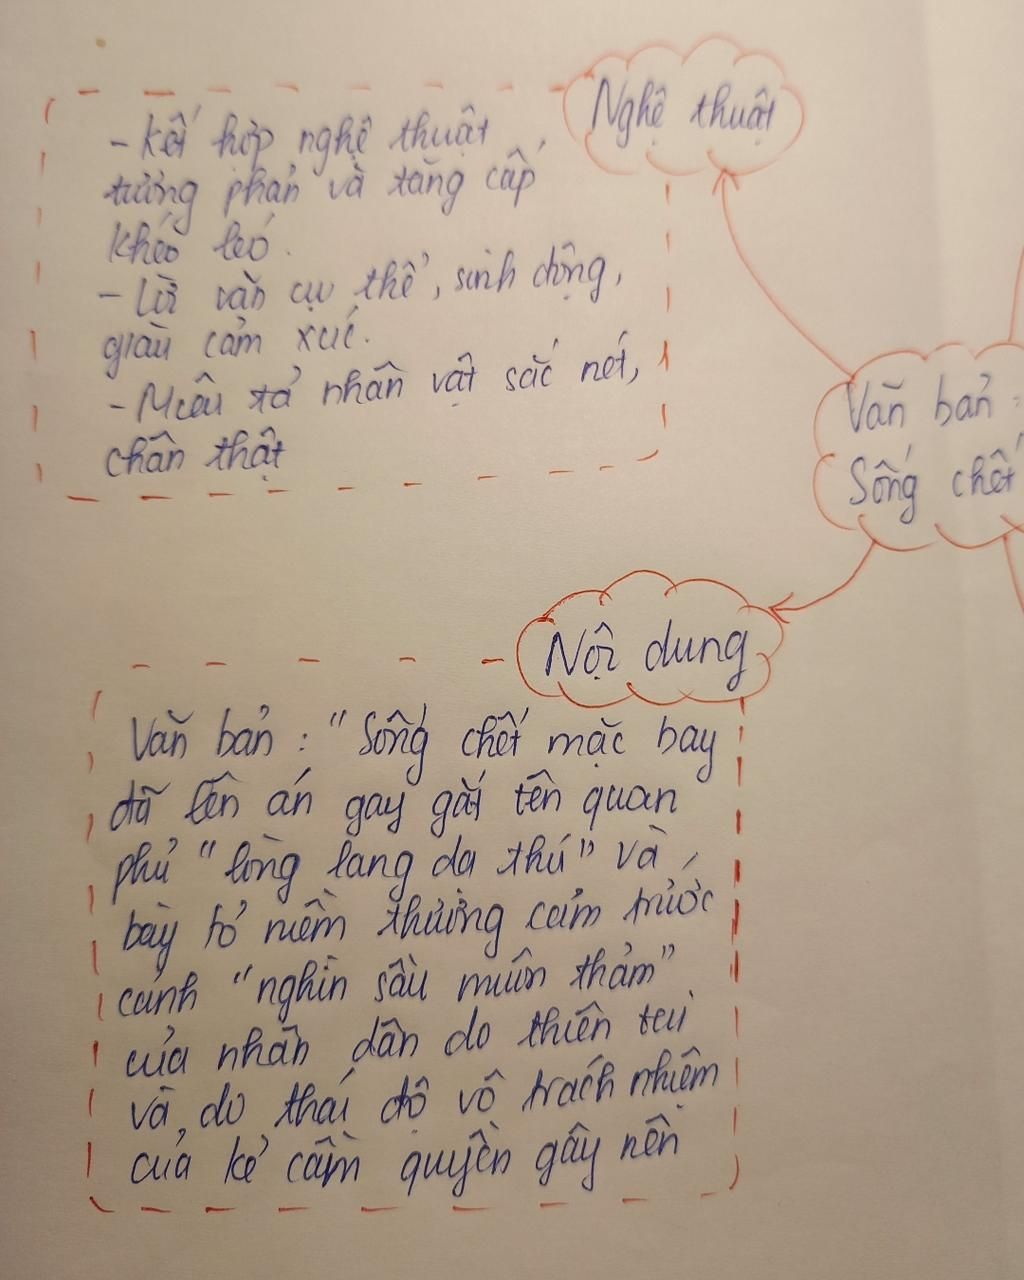 Nghệ thuật
- Kết hợp nghệ thuật
tương phản và tăng cấp
khéo léo.
- Lời văn cụ thể, sinh động,
giàu cảm xúc.
- Miêu tả nhân vật sắc nét,
chân thật
Văn bản :
Sống chết
Nội dung
Văn bản : "Sống chết mặc bay
đã lên án gay gắt tên quan
phủ "lòng lang dạ thú" và
bày tỏ niềm thương cảm trước
cảnh "nghìn sầu muôn thảm"
của nhân dân do thiên tai
và do thái độ vô trách nhiệm
của kẻ cầm quyền gây nên